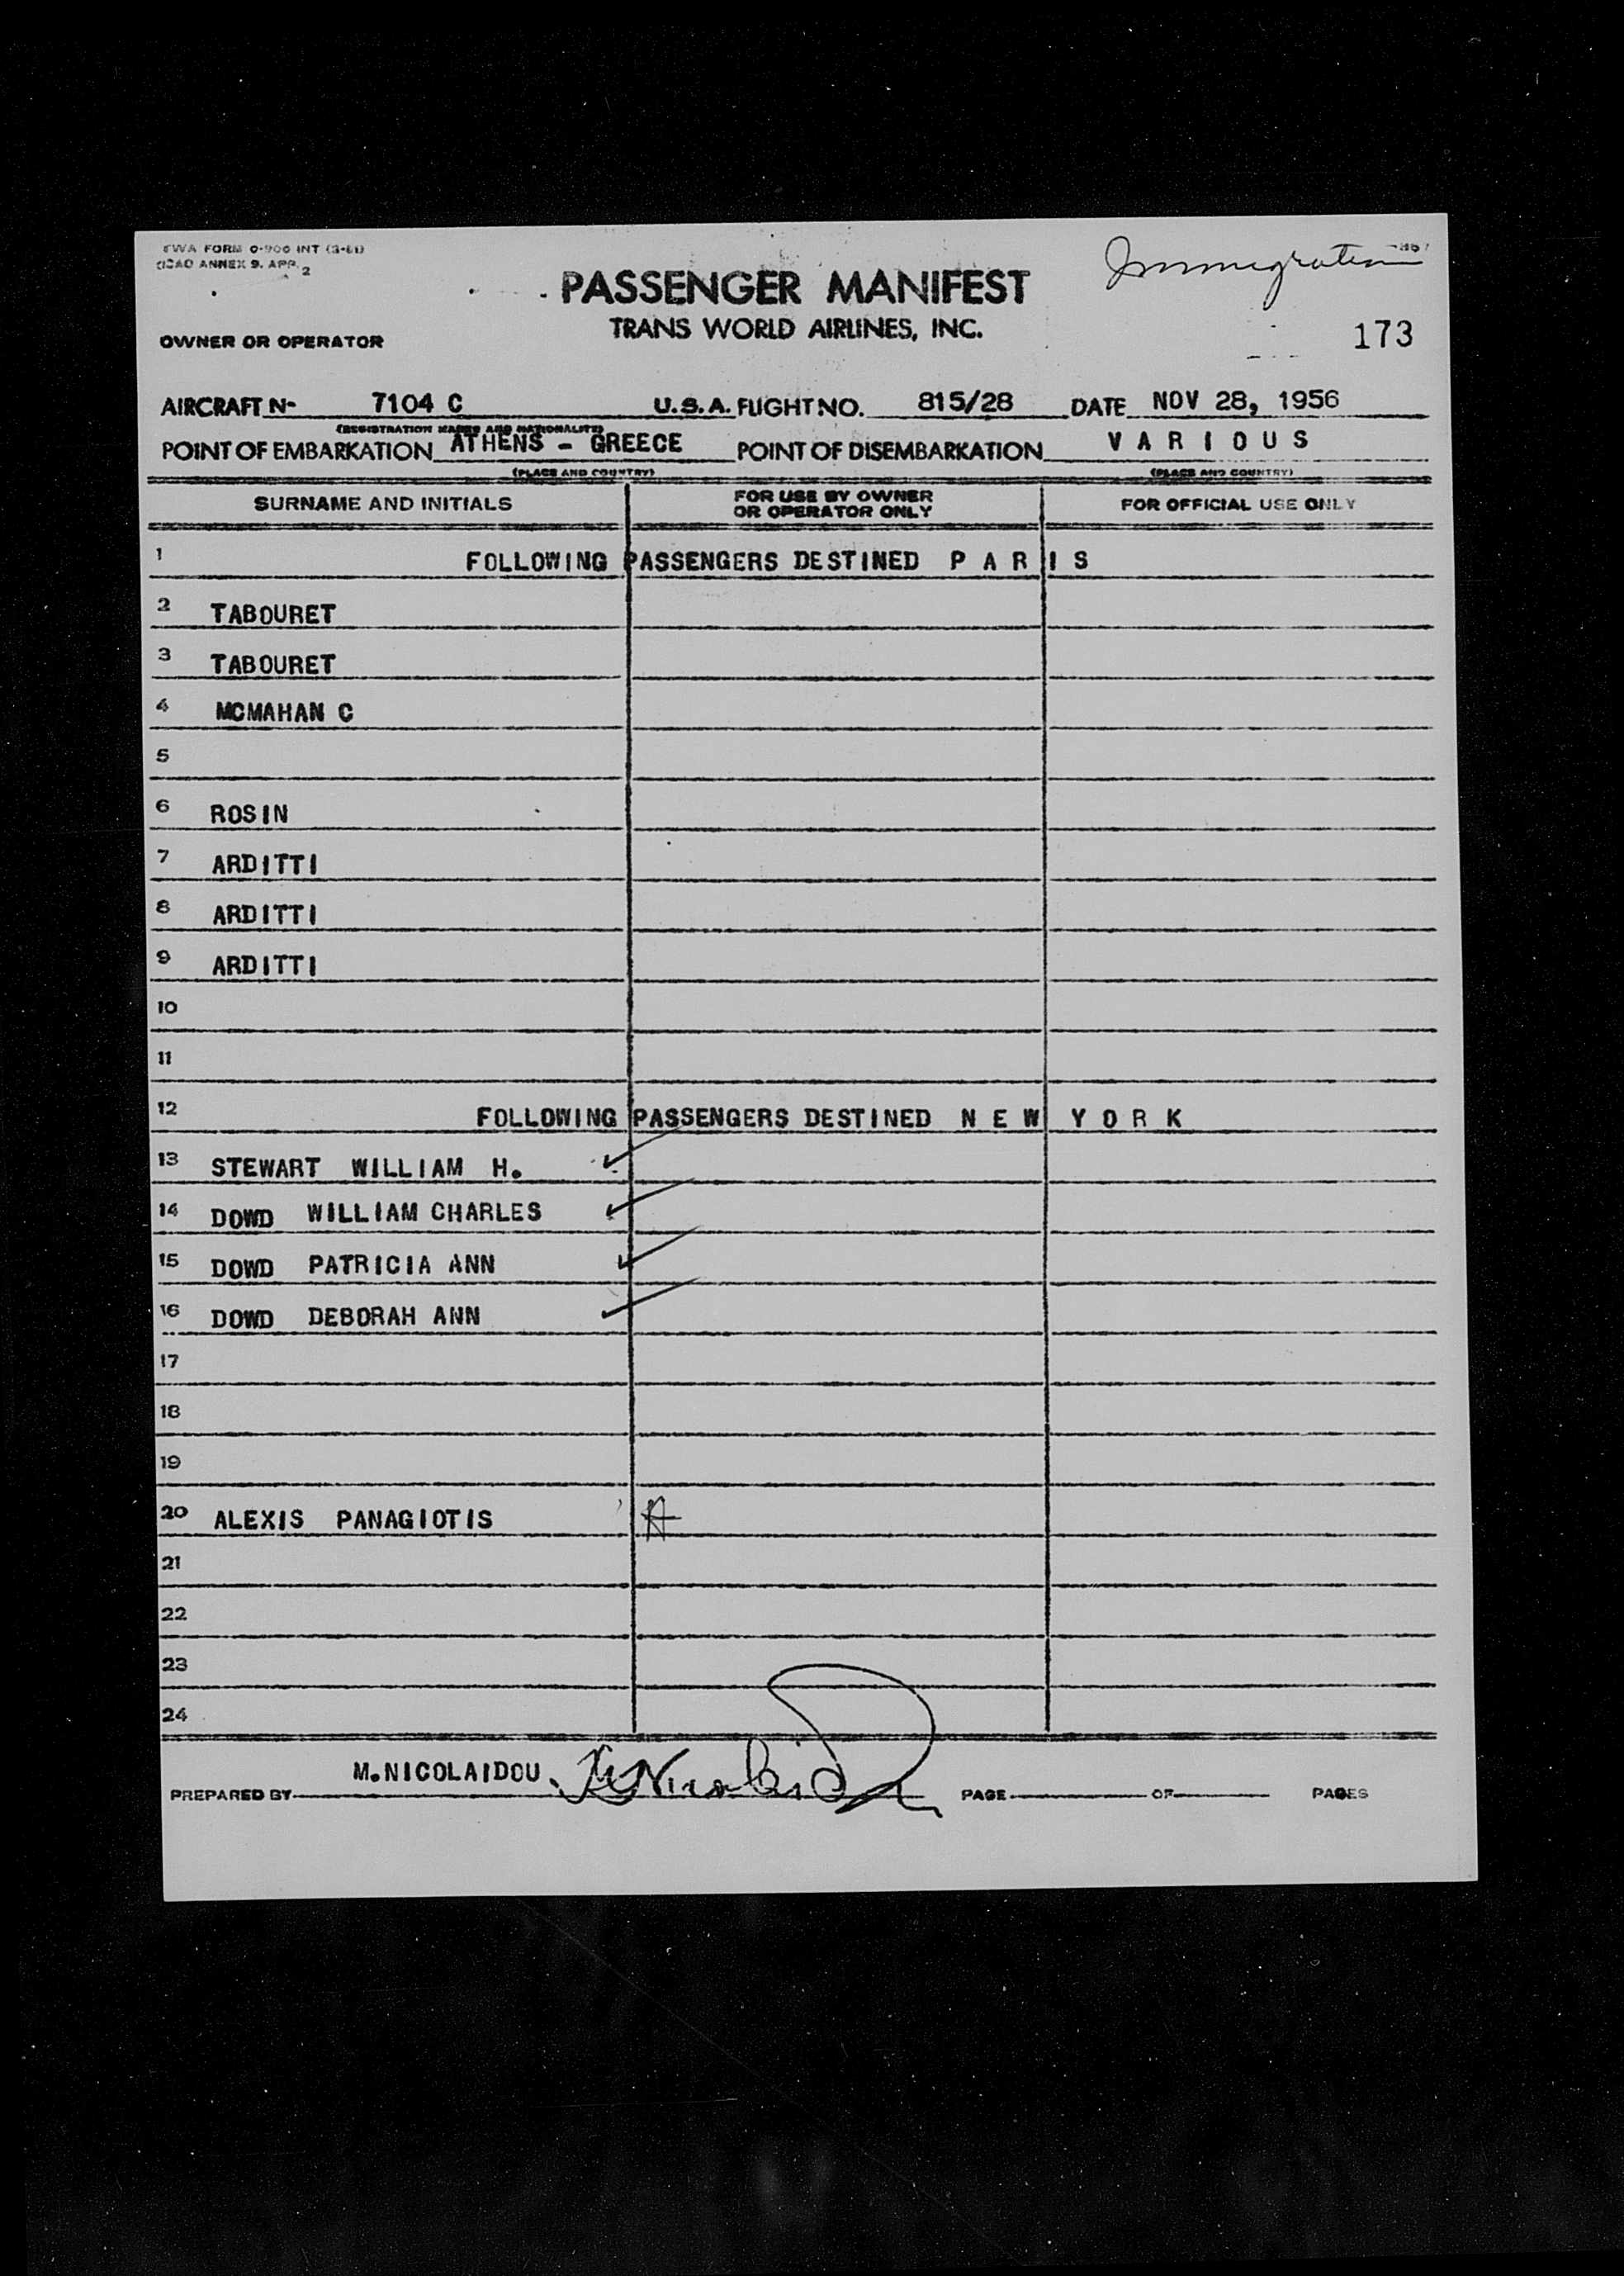 TWA FORM O-900 INT (3-51)
(ICAO ANNEX 9. APP. 2
Immigration
PASSENGER MANIFEST
TRANS WORLD AIRLINES, INC.
OWNER OR OPERATOR
173
AIRCRAFT N- 7104 C U.S.A. FLIGHT NO. 815/28 DATE NOV 28, 1956
(REGISTRATION MARKS AND NATIONALITY)
POINT OF EMBARKATION ATHENS - GREECE POINT OF DISEMBARKATION V A R I O U S
(PLACE AND COUNTRY) (PLACE AND COUNTRY)
SURNAME AND INITIALS FOR USE BY OWNER OR OPERATOR ONLY FOR OFFICIAL USE ONLY
1 FOLLOWING PASSENGERS DESTINED P A R I S
2 TABOURET
3 TABOURET
4 MCMAHAN C
5
6 ROSIN
7 ARDITTI
8 ARDITTI
9 ARDITTI
10
11
12 FOLLOWING PASSENGERS DESTINED N E W Y O R K
13 STEWART WILLIAM H.
14 DOWD WILLIAM CHARLES
15 DOWD PATRICIA ANN
16 DOWD DEBORAH ANN
17
18
19
20 ALEXIS PANAGIOTIS A
21
22
23
24
PREPARED BY M.NICOLAIDOU. PAGE OF PAGES